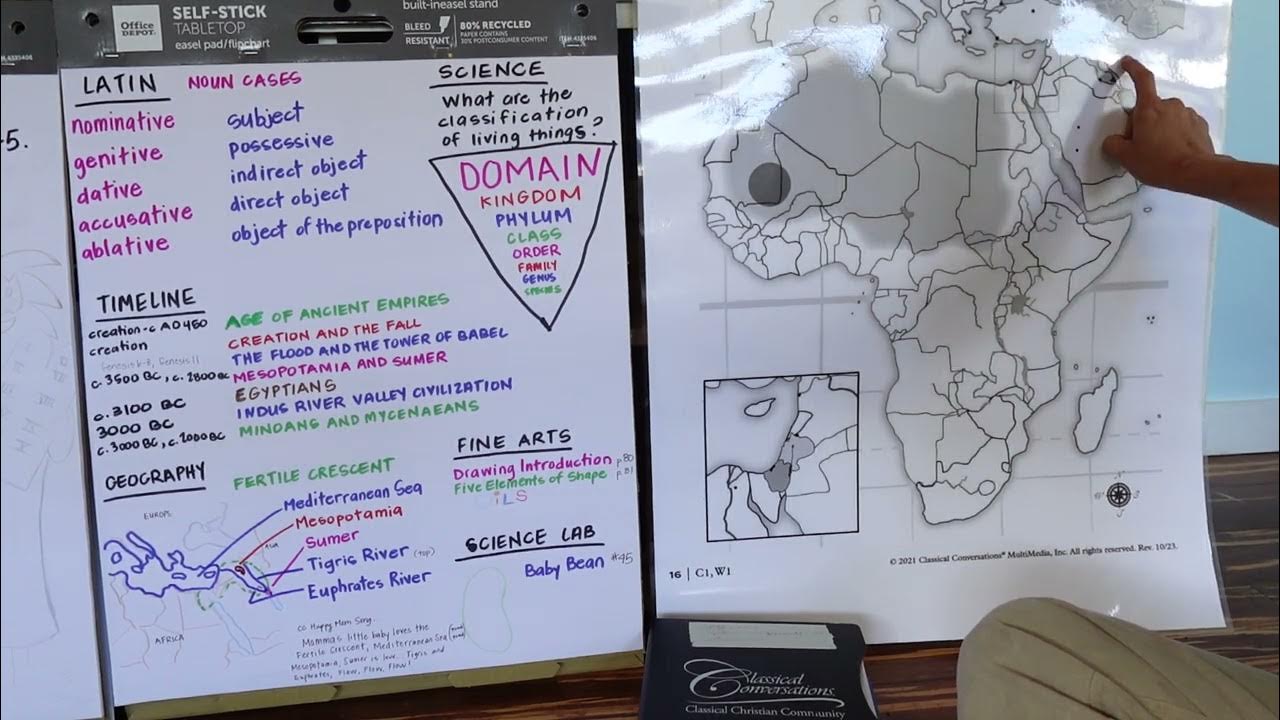 Office DEPOT.
SELF-STICK
TABLETOP
easel pad/flipchart
built-in easel stand
BLEED RESISTANT
80% RECYCLED
PAPER CONTAINS
30% POSTCONSUMER CONTENT
-5.
LATIN NOUN CASES
nominative subject
genitive possessive
dative indirect object
accusative direct object
ablative object of the preposition
SCIENCE
What are the
classification
of living things?
DOMAIN
KINGDOM
PHYLUM
CLASS
ORDER
FAMILY
GENUS
SPECIES
TIMELINE
creation-c AD 450 AGE OF ANCIENT EMPIRES
creation CREATION AND THE FALL
Genesis 6-8, Genesis 11 THE FLOOD AND THE TOWER OF BABEL
c. 3500 BC, c. 2800 BC MESOPOTAMIA AND SUMER
c. 3100 BC EGYPTIANS
3000 BC INDUS RIVER VALLEY CIVILIZATION
c. 3000 BC, c. 2000 BC MINOANS AND MYCENAEANS
GEOGRAPHY FERTILE CRESCENT
EUROPE
Mediterranean Sea
Mesopotamia
Sumer
ASIA
Tigris River (top)
Euphrates River
AFRICA
CC Happy Mom Song.
Momma's little baby loves the
Fertile Crescent, Mediterranean Sea
Mesopotamia, Sumer is love... Tigris and
Euphrates, Flow, Flow, Flow!
FINE ARTS
Drawing Introduction p.80
Five Elements of Shape p.81
OiLS
SCIENCE LAB
Baby Bean #45
© 2021 Classical Conversations® MultiMedia, Inc. All rights reserved. Rev. 10/23.
16 | C1, W1
Classical
Conversations
Classical Christian Community